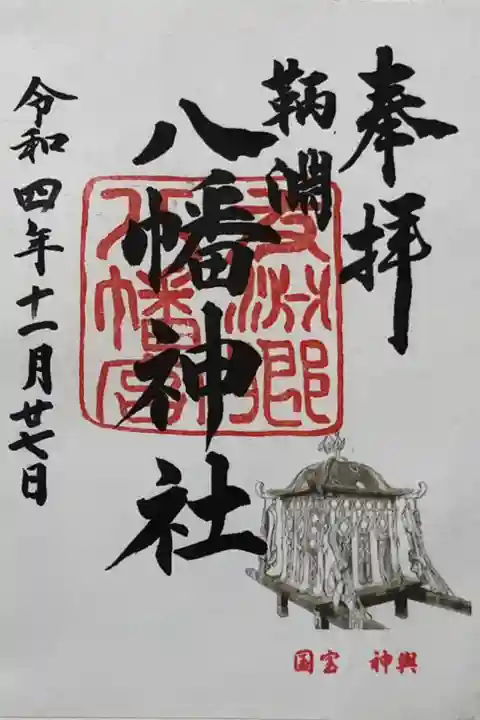 奉拝
鞆淵
八幡神社
令和四年十一月廿七日
八幡宮
国宝 神輿